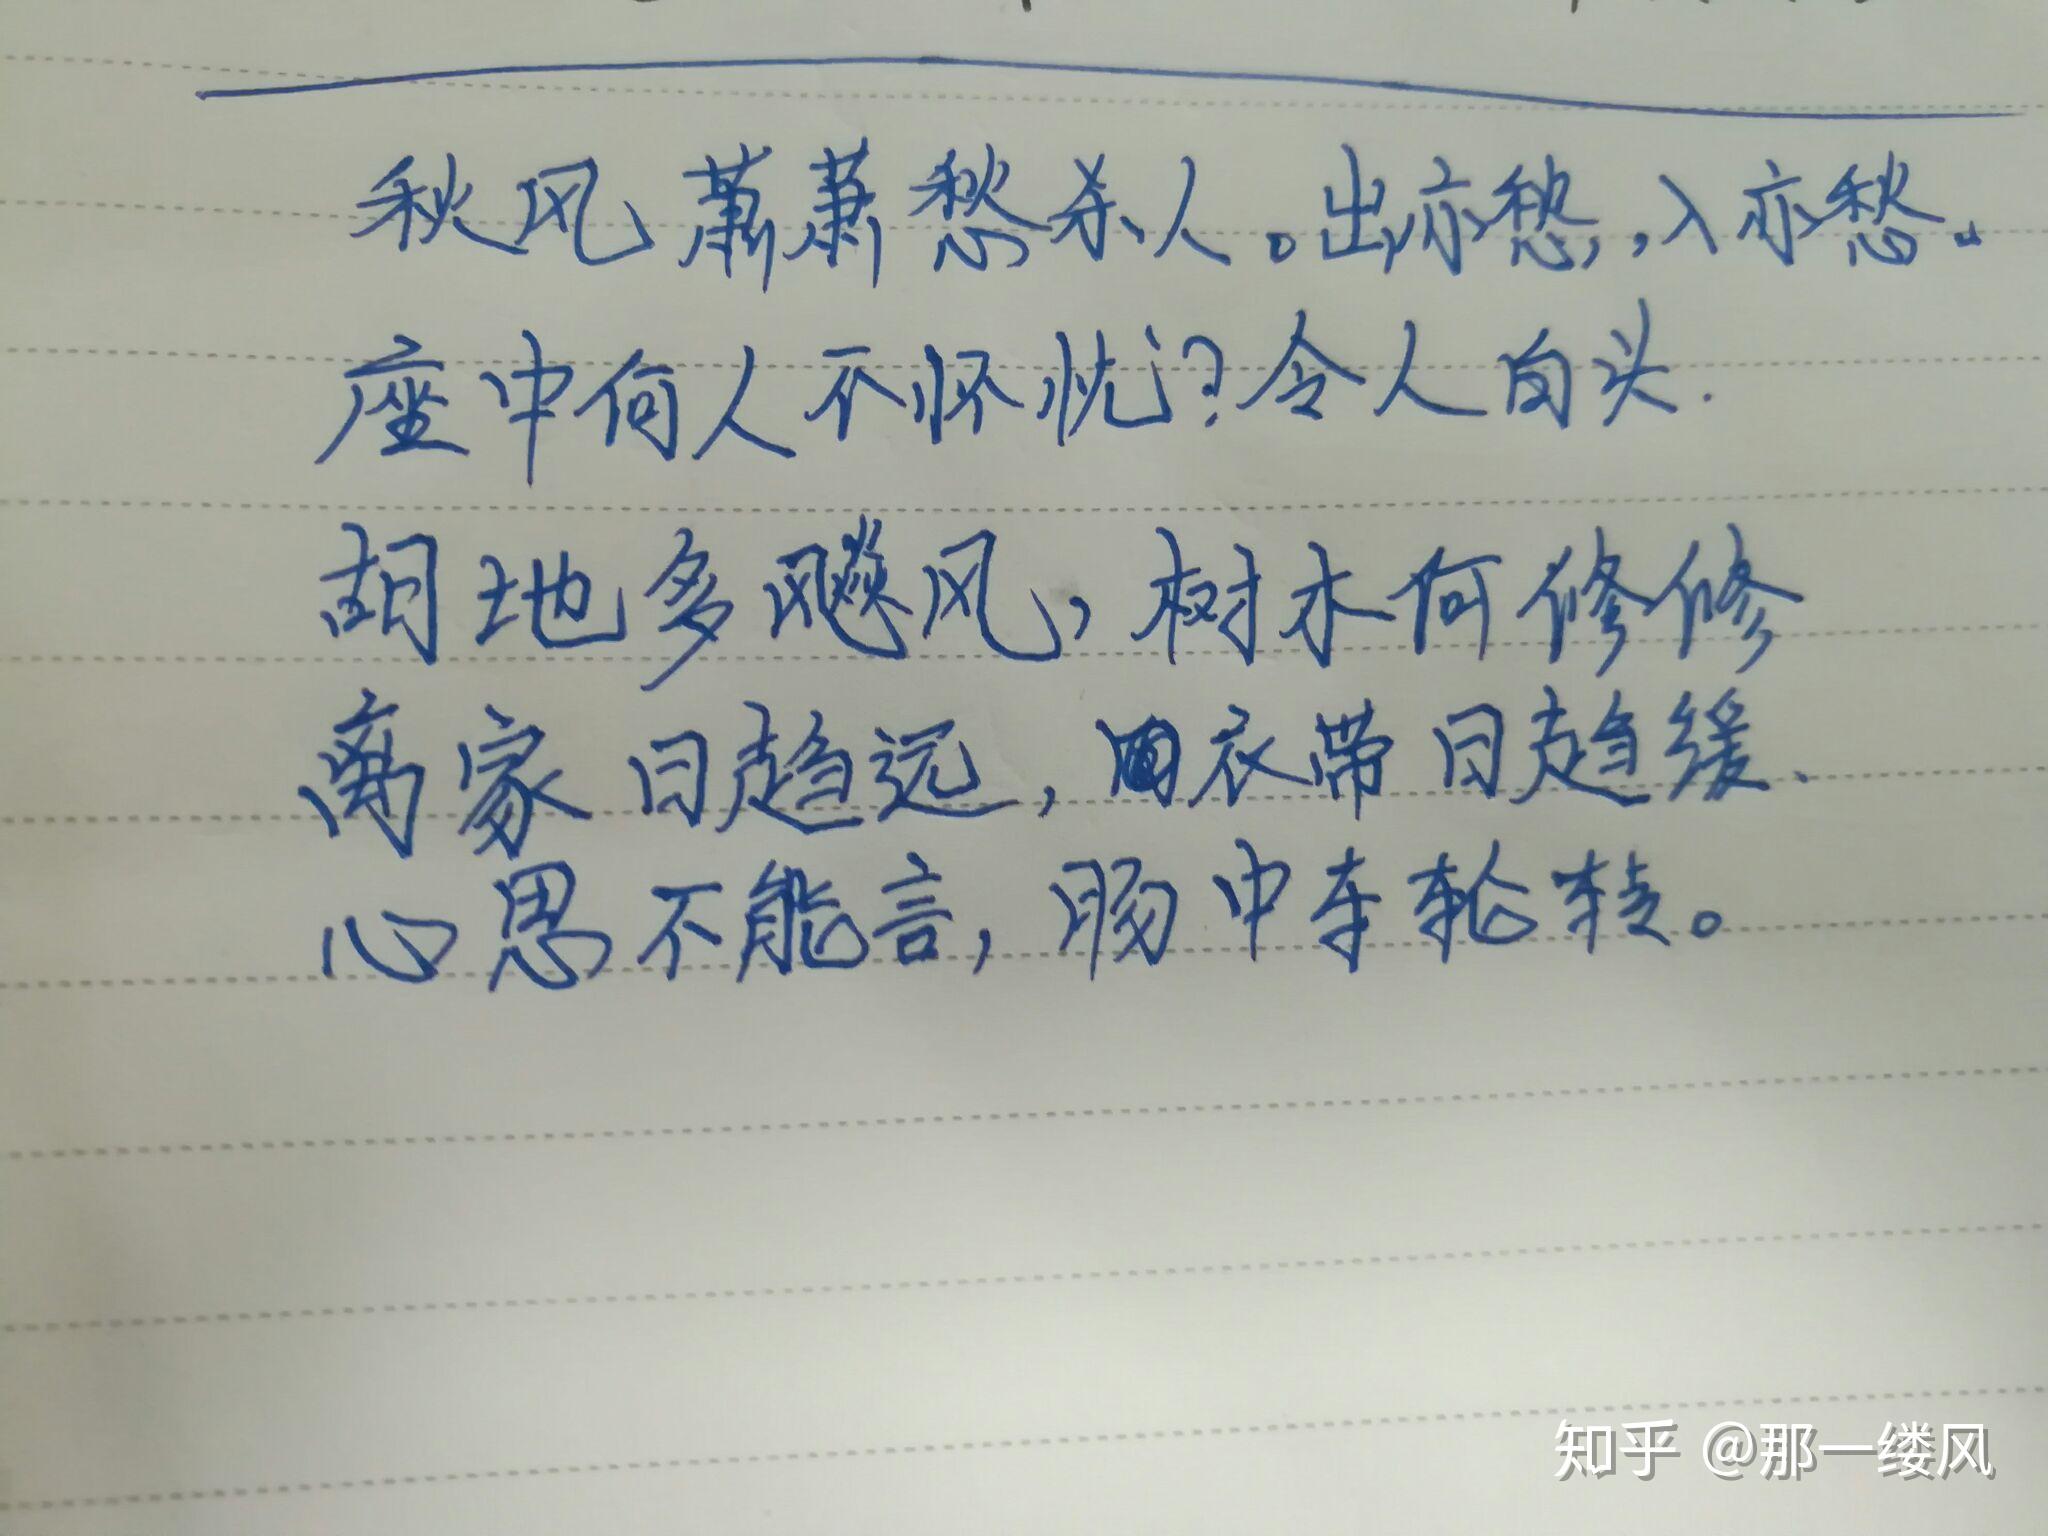 秋风萧萧愁杀人。出亦愁,入亦愁。
座中何人不怀忧?令人白头.
胡地多飚风,树木何修修
离家日趋远,衣带日趋缓.
心思不能言,肠中车轮转。
知乎 @那一缕风